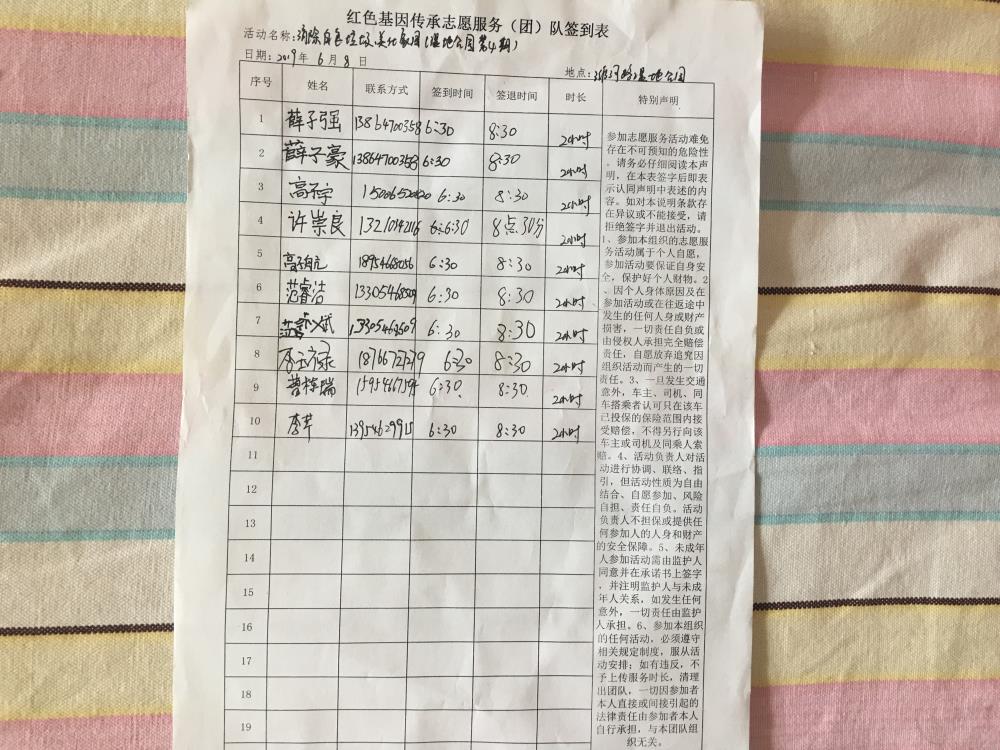 红色基因传承志愿服务（团）队签到表
活动名称：消除白色垃圾,美化家园(湿地公园第4期)
日期：2019年 6月8日
地点：湿地公园
序号 姓名 联系方式 签到时间 签退时间 时长 特别声明
1 薛子强 13864700358 6:30 8:30 2小时
2 薛子豪 13864700358 6:30 8:30 2小时
3 6:30 8:30 2小时
4 许崇良 13210142116 6:30 8点30分 2小时
5 18954680056 6:30 8:30 2小时
6 范睿洁 13305468509 6:30 8:30 2小时
7 6:30 8:30 2小时
8 18766727279 6:30 8:30 2小时
9 6:30 8:30 2小时
10 李芊 6:30 8:30 2小时
11
12
13
14
15
16
17
18
19
参加志愿服务活动难免
存在不可预知的危险性
。请务必仔细阅读本声
明，在本表签字后即表
示认同声明中表述的内
容。如对本说明条款存
在异议或不能接受，请
拒绝签字并退出活动。
1、参加本组织的志愿服
务活动属于个人自愿，
参加活动要保证自身安
全，保护好个人财物。2
、因个人身体原因及在
参加活动或在往返途中
发生的任何人身或财产
损害，一切责任自负或
由侵权人承担完全赔偿
责任，自愿放弃追究因
组织活动而产生的一切
责任。3、一旦发生交通
意外，车主、司机、同
车搭乘者认可只在该车
已投保的保险范围内接
受赔偿，不得另行向该
车主或司机及同乘人索
赔。4、活动负责人对活
动进行协调、联络、指
引，但活动性质为自由
结合、自愿参加、风险
自担、责任自负。活动
负责人不担保或提供任
何参加人的人身和财产
的安全保障。5、未成年
人参加活动需由监护人
同意并在承诺书上签字
，并注明监护人与未成
年人关系，如发生任何
意外，一切责任由监护
人承担。6、参加本组织
的任何活动，必须遵守
相关规定制度，服从活
动安排；如有违反，不
予上传服务时长，清理
出团队，一切因参加者
本人直接或间接引起的
法律责任由参加者本人
自行承担，与本团队组
织无关。